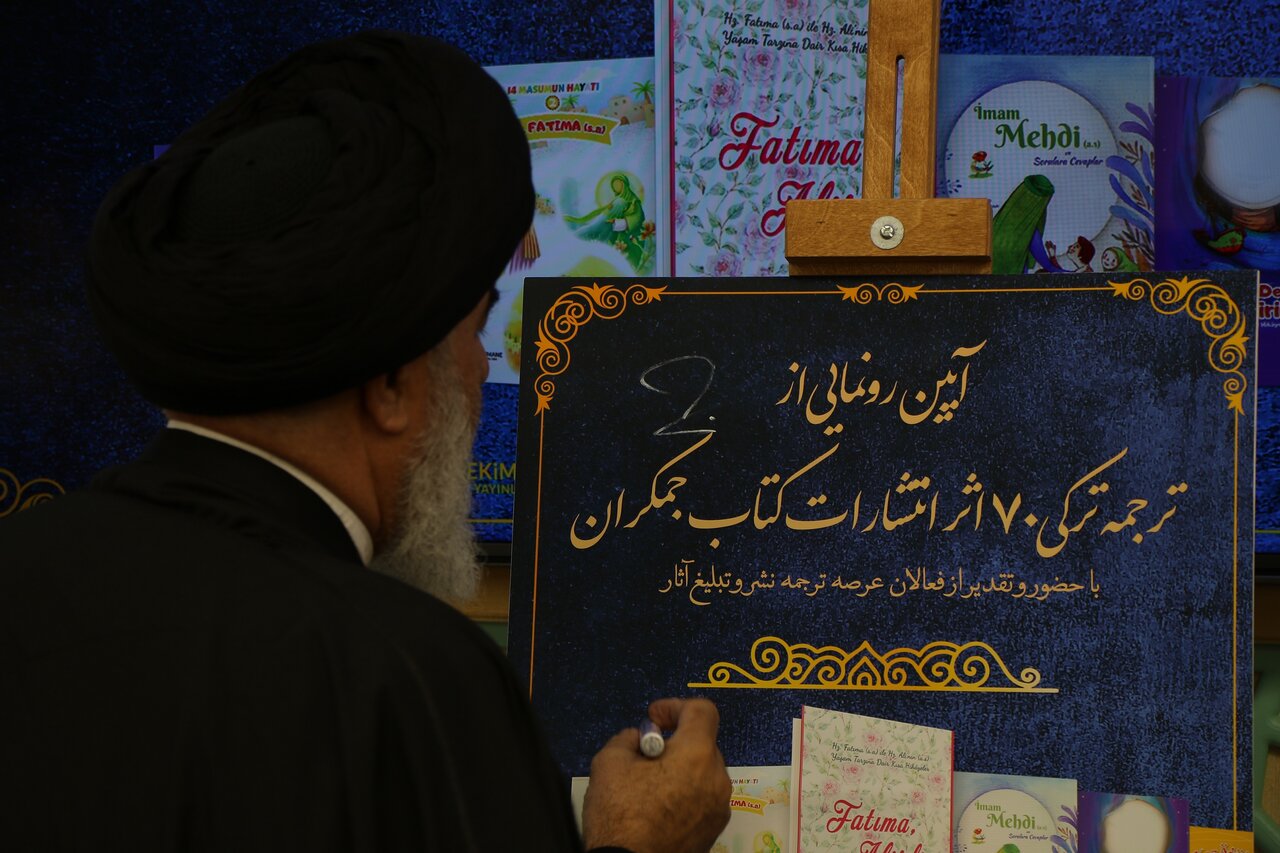 Hz. Fatıma (s.a) ile Hz. Ali'nin
Yaşam Tarzına Dair Kısa Hik
14 MASUMUN HAYATI
FATIMA (s.a)
Fatıma
İmam
Mehdi (a.s)
ve
Sorulara Cevaplar
EKİM
YAYINL
آیین رونمایی از
ترجمه ترکی ۷۰ اثر انتشارات کتاب جمکران
با حضور و تقدیر از فعالان عرصه ترجمه نشر و تبلیغ آثار
Hz. Fatıma (s.a) ile Hz. Ali'nin (a.s)
Yaşam Tarzına Dair Kısa Hikâyeler
Fatıma,
MASUMUN HAYATI
FATIMA (s.a)
İmam
Mehdi (a.s)
ve
Sorulara Cevaplar